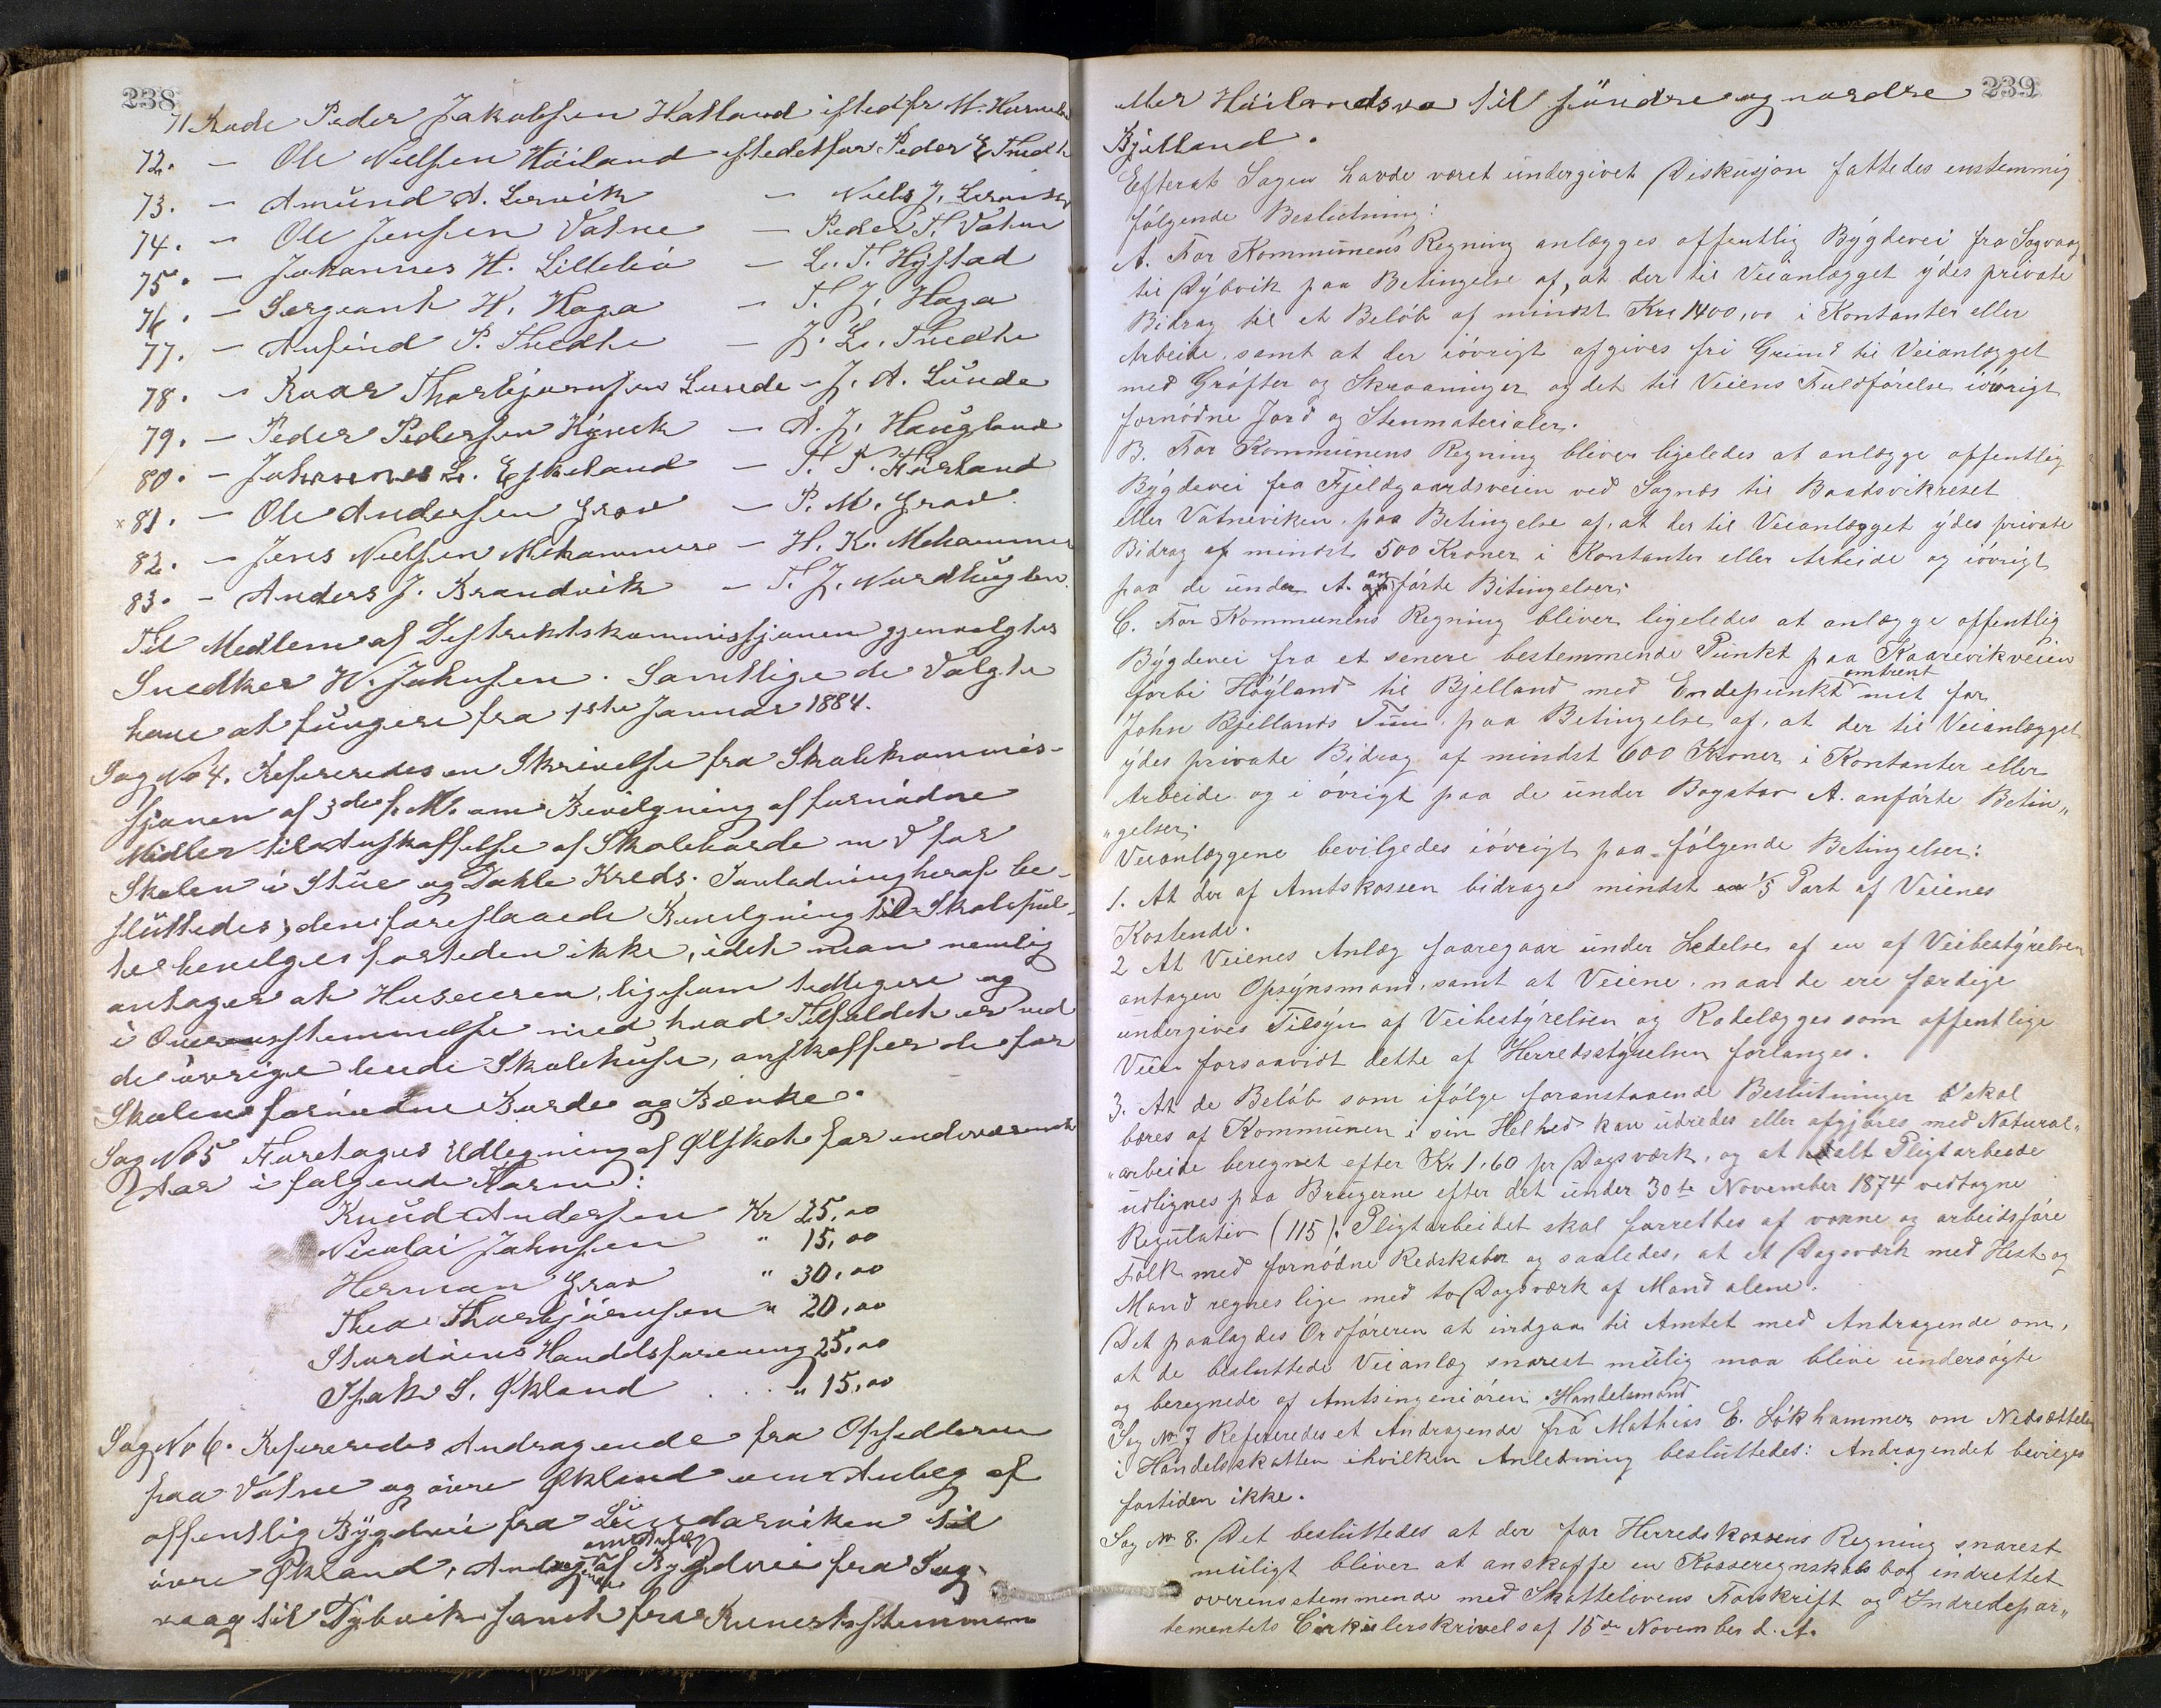 238
71 Rode Peder Jakobsen Hatland istedfr M. Hornel
72. – Ole Nielsen Höiland istedetfor Peder E Tnedt
73. – Amund A. Lervik – Niels J. Lervik
74. – Ole Jensen Vatne – Peder T. Vatne
75. – Johannes H. Lillebö – L. T. Hystad
76. – Sergeant H. Haga – T. J. Haga
77. – Anfind P. Tnedte – J. L. Tnedte
78. – Roar Thorbjörnsen Lunde – J. A. Lunde
79. – Peder Pedersen Hgreek – A. J. Haugland
80. – Johannes L. Eskeland – T. T. Hörland
x 81. – Ole Andersen Grov – P. M. Grov
82. – Jens Nielsen Mehammer – H. K. Mehammer
83. – Anders J. Brandvik – T. J. Nordhuglen
Til Medlem af Distriktskommissjonen gjenvalgtes
Snedker H. Johnsen. Samtlige de Valgte
have at fungere fra 1ste Januar 1884.
Sag No 4. Refereredes en Skrivelse fra Skolekommis-
sjonen af 3die f. M. om Bevilgning af fornödne
Midler til Anskaffelse af Skoleborde m d for
Skolen i Stue og Dahle Kreds. I anledning heraf be-
sluttedes; den foreslaaede Bevilgning til Skolepul-
ter bevilges fortiden ikke, idet man nemlig
antager at Huseieren, ligesom tidligere og
i Overensstemmelse med hvad Tilfældet er ved
de övrige leiede Skolehuse, anskaffer de for
Skolen fornödne Borde og Bænke.
Sag No 5 Foretoges Udlegning af Ølskat for indeværende
Aar i følgende Form:
Knud Andersen Kr 25,00
Nicolai Johnsen " 15,00
Herman Grov " 30,00
Thea Thorbjörnsen " 20,00
Stordöens Handelsforening 25,00
Isak S. Økland . . . " 15,00
Sag No 6. Refereredes Andragende fra Opsidderne
paa Vatne og övre Økland om Anlæg af
offentlig Bygdevei fra Lundarviken til
om Anlæg
övre Økland, Andragende af Bygdevei fra Sag-
vaag til Dybvik samt fra Kunestestemmen
239
eller Höilandsva til söndre og nordre
Bjelland.
Efterat Sagen havde været undergivet Diskusjon fattedes enstemmig
fölgende Beslutning:
A. For Kommunens Regning anlægges offentlig Bygdevei fra Sagvaag
til Dybvik paa Betingelse af, at der til Veianlægget ydes private
Bidrag til et Beløb af mindst Kr. 1400,00 i Kontanter eller
Arbeide, samt at der iövrigt afgives fri Grund til Veianlægget
med Gröfter og Skraaninger og det til Veiens Fuldförelse iövrigt
fornödne Jord og Stenmaterialer.
B. For Kommunens Regning bliver ligeledes at anlægge offentlig
Bygdevei fra Fjeldgaardsveien ved Sagnæs til Baatsvikreset
eller Vatneviken, paa Betingelse af, at der til Veianlægget ydes private
Bidrag af mindst 500 Kroner i Kontanter eller Arbeide og iövrigt
paa de under A. anförte Betingelser.
C. For Kommunens Regning bliver ligeledes at anlægge offentlig
Bygdevei fra et senere bestemmende Punkt paa Kaarevikveien
forbi Höyland til Bjelland med Endepunkt omtrent mit for
John Bjellands Tun, paa Betingelse af, at der til Veianlægget
ydes private Bidrag af mindst 600 Kroner i Kontanter eller
Arbeide og i övrigt paa de under Bogstav A. anförte Betin„
„gelser.
Veianlæggene bevilgedes iövrigt paa fölgende Betingelser:
1. At der af Amtskassen bidrages mindst 1/5 Part af Veienes
Kostende.
2 At Veienes Anlæg foaregaar under Ledelse af en af Veibestyrelsen
antagen Opsynsmand, samt at Veiene, naar de ere færdige
undergives Tilsyn af Veibestyrelsen og Rodelægges som offentlige
Veie forsaavidt dette af Herredsstyrelsen forlanges.
3. At de Beløb som ifölge foranstaaende Beslutninger skal
bæres af Kommunen i sin Helhed kan udredes eller afgjöres med Natural„
„arbeide beregnet efter Kr 1,60 pr Dagsværk, og at alt Pligtarbeide
udlignes paa Brugerne efter det under 30te November 1874 vedtagne
Regulativ (115). Pligtarbeidet skal forrettes af voxne og arbeidsföre
Folk med fornödne Redskaber og saaledes, at et Dagsværk med Hest og
Mand regnes lige med to Dagsværk af Mand alene.
Det paalagdes Ordföreren at indgaa til Amtet med Andragende om,
at de besluttede Veianlæg snarest mulig maa blive undersögte
og beregnede af Amtsingeniören.
Sag No 7 Refereredes et Andragende fra Handelsmand Mathias E. Lökhammer om Nedsættelse
i Handelsskatten ihvilken Anledning besluttedes: Andragendet bevilges
fortiden ikke.
Sag No 8. Det besluttedes at der for Herredskassens Regning snarest
muligt bliver at anskaffe en Kasseregnskabsbog indrettet
overensstemmende med Skattelovens Forskrift og Indredepar„
tementets Cirkulerskrivels af 15de November d. A.